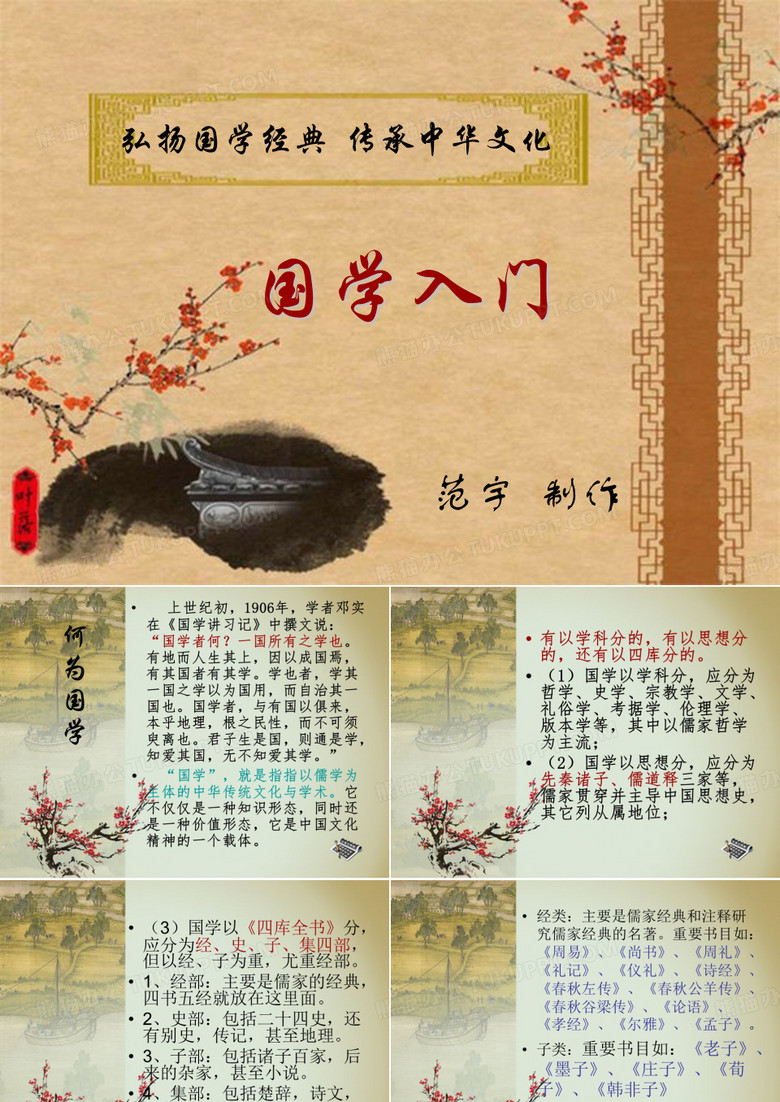 弘扬国学经典 传承中华文化
国学入门
叶落
范宇 制作
何为国学
• 上世纪初，1906年，学者邓实
在《国学讲习记》中撰文说：
“国学者何？一国所有之学也。
有地而人生其上，因以成国焉，
有其国者有其学。学也者，学其
一国之学以为国用，而自治其一
国也。国学者，与有国以俱来，
本乎地理，根之民性，而不可须
臾离也。君子生是国，则通是学，
知爱其国，无不知爱其学。”
• “国学”，就是指指以儒学为
主体的中华传统文化与学术。它
不仅仅是一种知识形态，同时还
是一种价值形态，它是中国文化
精神的一个载体。
• 有以学科分的，有以思想分
的，还有以四库分的。
• （1）国学以学科分，应分为
哲学、史学、宗教学、文学、
礼俗学、考据学、伦理学、
版本学等，其中以儒家哲学
为主流；
• （2）国学以思想分，应分为
先秦诸子、儒道释三家等，
儒家贯穿并主导中国思想史，
其它列从属地位；
• （3）国学以《四库全书》分，
应分为经、史、子、集四部，
但以经、子为重，尤重经部。
• 1、经部：主要是儒家的经典，
四书五经就放在这里面。
• 2、史部：包括二十四史，还
有别史，传记，甚至地理。
• 3、子部：包括诸子百家，后
来的杂家，甚至小说。
• 4、集部：包括楚辞，诗文，
• 经类：主要是儒家经典和注释研
究儒家经典的名著。重要书目如：
《周易》、《尚书》、《周礼》、
《礼记》、《仪礼》、《诗经》、
《春秋左传》、《春秋公羊传》、
《春秋谷梁传》、《论语》、
《孝经》、《尔雅》、《孟子》。
• 子类：重要书目如：《老子》、
《墨子》、《庄子》、《荀
子》、《韩非子》